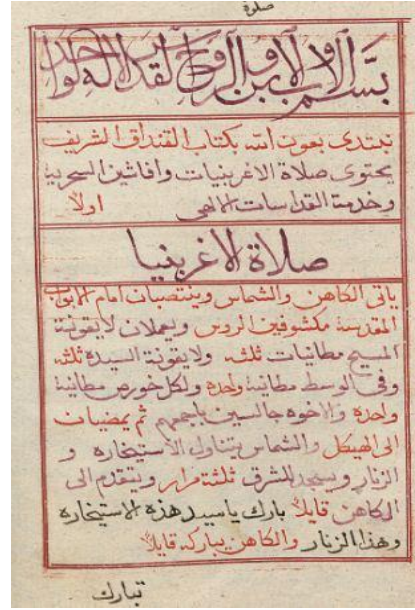 صلوة
بسم الاب والابن والروح القدس الاله الواحد
نبتدى بعون الله بكتاب القنداق الشريف
يحتوى صلاة الاغربنيات وافاشين السحرية
وخدمة القداسات الالهى اولاً
صلاة الاغربنيا
ياتى الكاهن والشماس وينتصبان امام الابواب
المقدسة مكشوفين الروس ويعملان لايقونة
المسيح مطانيات ثلثه ولايقونة السيدة ثلثه
وفى الوسط مطانية واحده ولكل خورص مطانية
واحدة والاخوه جالسين باجمهم ثم يمضيان
الى الهيكل والشماس يتناول الاستيخاره و
الزنار ويسجد للشرق ثلثة مرار ويتقدم الى
الكاهن قايلاً بارك ياسيد هذه الاستيخاره
وهذا الزنار والكاهن يباركه قايلاً
تبارك